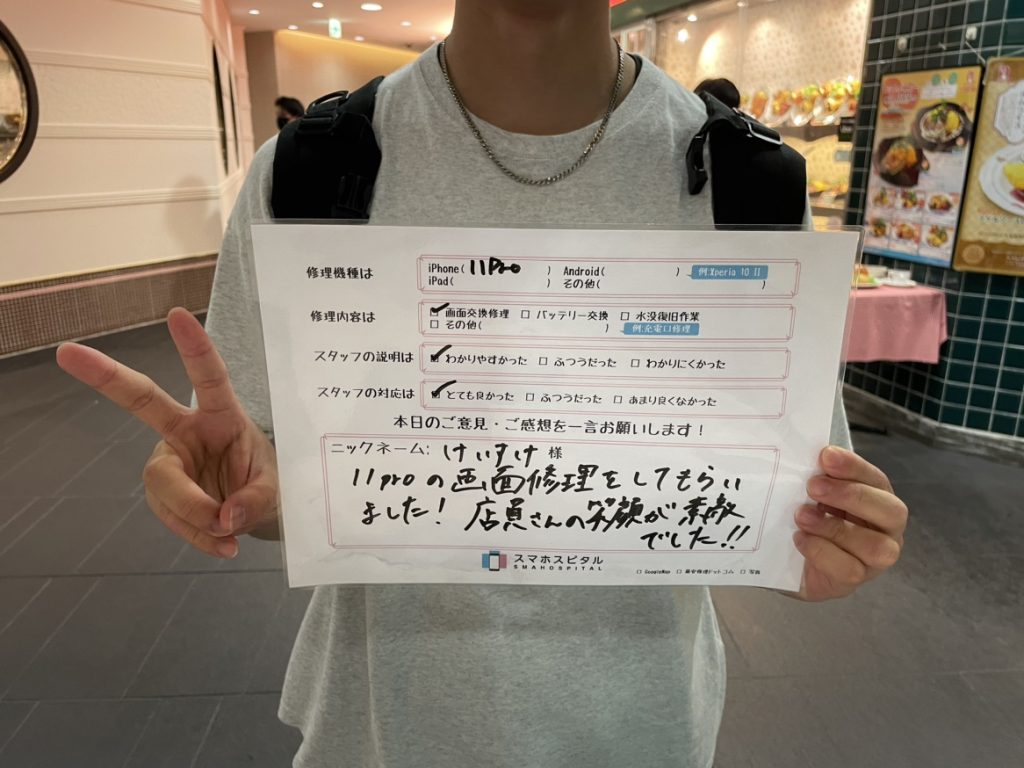 修理機種は
iPhone( 11Pro ) Android( ) 例:Xperia 10 II
iPad( ) その他( )
修理内容は
☑ 画面交換修理 □ バッテリー交換 □ 水没復旧作業
□ その他( ) 例:充電口修理
スタッフの説明は ☑ わかりやすかった □ ふつうだった □ わかりにくかった
スタッフの対応は ☑ とても良かった □ ふつうだった □ あまり良くなかった
本日のご意見・ご感想を一言お願いします！
ニックネーム: けいすけ 様
11proの画面修理をしてもらい
ました! 店員さんの笑顔が素敵
でした!!
スマホスピタル
SMAHOSPITAL
□ GoogleMap □ 最安修理ドットコム □ 写真